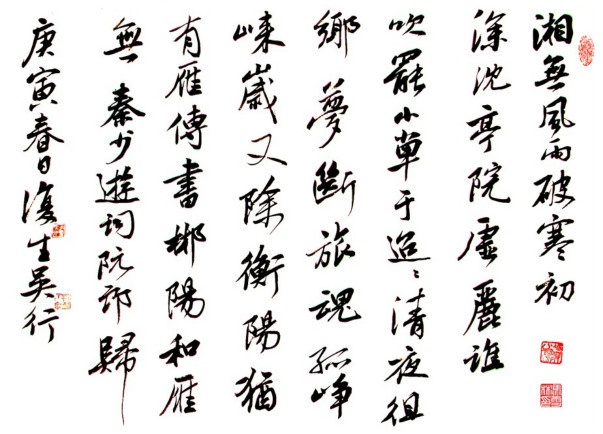 湘無風雨破寒初
深沈亭院虛麗谁
吹罷小單于迢〻清夜徂
鄉夢斷旅魂孤崢
嶸歲又除衡陽猶
有雁傳書郴陽和雁
無 秦少遊詞阮郎歸
庚寅春日復生吴行